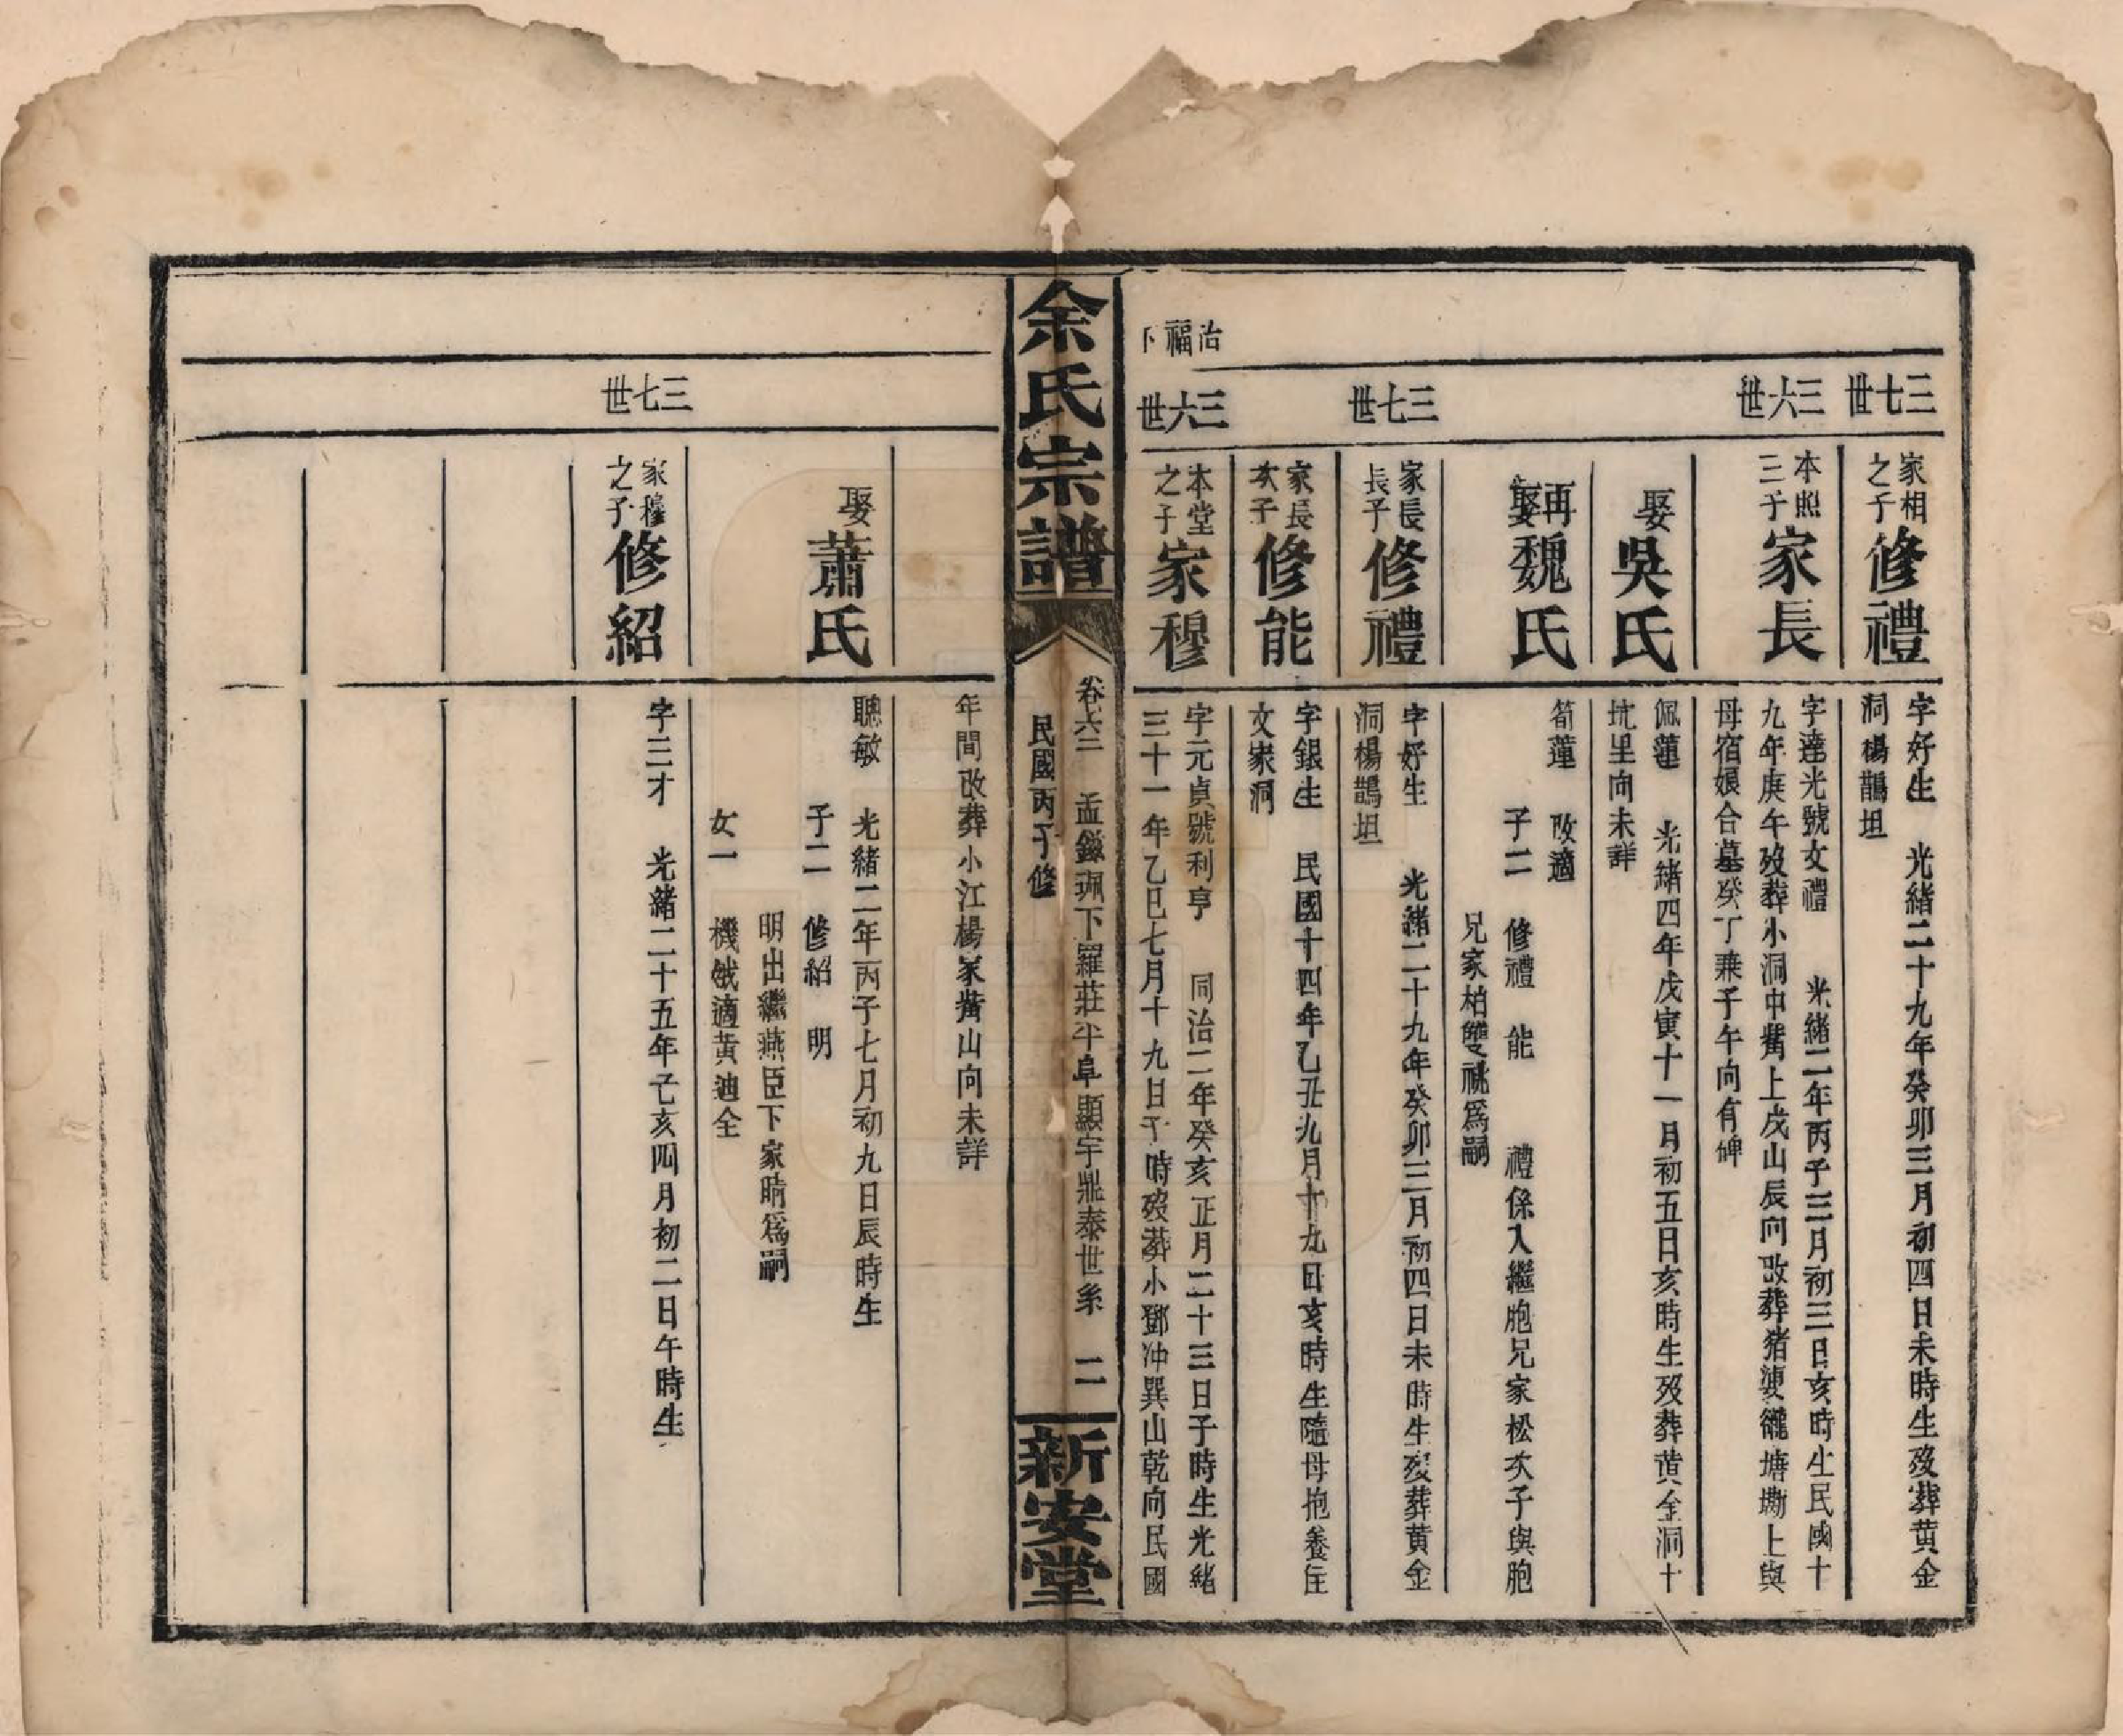 三七世
家相之子
修禮
字好生 光緒二十九年癸卯三月初四日未時生歿葬黃金
洞楊鵲坦
三六世
本照三子
家長
字達光號文禮 光緒二年丙子三月初三日亥時生民國十
九年庚午歿葬小洞中觜上戌山辰向改葬猪婆 塘墈上與
母宿娘合墓癸丁兼子午向有碑
娶吳氏
佩蓮 光緒四年戊寅十一月初五日亥時生歿葬黃金洞十
坑里向未詳
再娶魏氏
筍蓮 改適
子二 修禮 能 禮係入繼胞兄家松次子與胞
兄家柏雙祧爲嗣
三七世
家長長子
修禮
字好生 光緒二十九年癸卯三月初四日未時生歿葬黃金
洞楊鵲坦
家長次子
修能
字銀生 民國十四年乙丑九月十九日亥時生隨母抱養住
文家洞
治福下
三六世
本堂之子
家穆
字元貞號利亨 同治二年癸亥正月二十三日子時生光緒
三十一年乙巳七月十九日子時歿葬小鄧冲巽山乾向民國
余氏宗譜
卷六三 孟鎰珮下羅莊半阜顯宇鼎泰世系 二
民國丙子修
新安堂
年間改葬小江楊家觜山向未詳
娶蕭氏
聰敏 光緒二年丙子七月初九日辰時生
子二 修紹 明
明出繼燕臣下家晴爲嗣
女一 機娥適黃迪全
三七世
家穆之子
修紹
字三才 光緒二十五年己亥四月初二日午時生